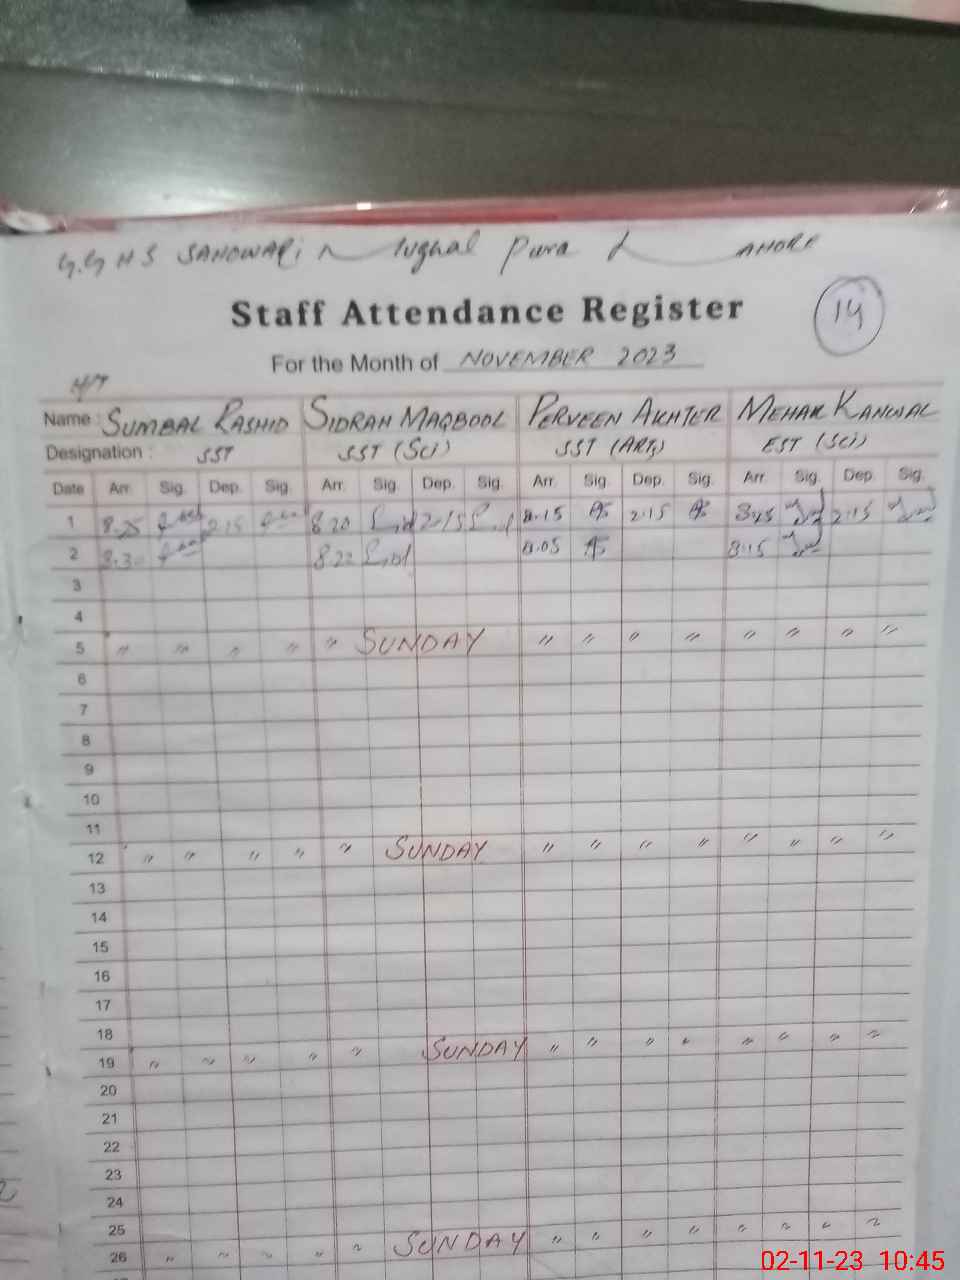 G.G H S SANDWARI Mughal Pura LAHORE
Staff Attendance Register
14
For the Month of NOVEMBER 2023
H/T
Name : SUMBAL RASHID SIDRAH MAQBOOL PERVEEN AKHTER MEHAK KANWAL
Designation : SST SST (SCI) SST (ARTS) EST (SCI)
Date Arr. Sig. Dep. Sig. Arr. Sig. Dep. Sig. Arr. Sig. Dep. Sig. Arr. Sig. Dep. Sig.
1 8.25 2.15 8.20 2.15 8.15 2.15 2.15
2 8.30 8.22 8.05 8.15
3
4
5 " " " " " SUNDAY " " " " " " " "
6
7
8
9
10
11
12 " " " " " SUNDAY " " " " " " " "
13
14
15
16
17
18
19 " " " " " SUNDAY " " " " " " " "
20
21
22
23
24
25
26 " " " " " SUNDAY " " " " " " " "
02-11-23 10:45